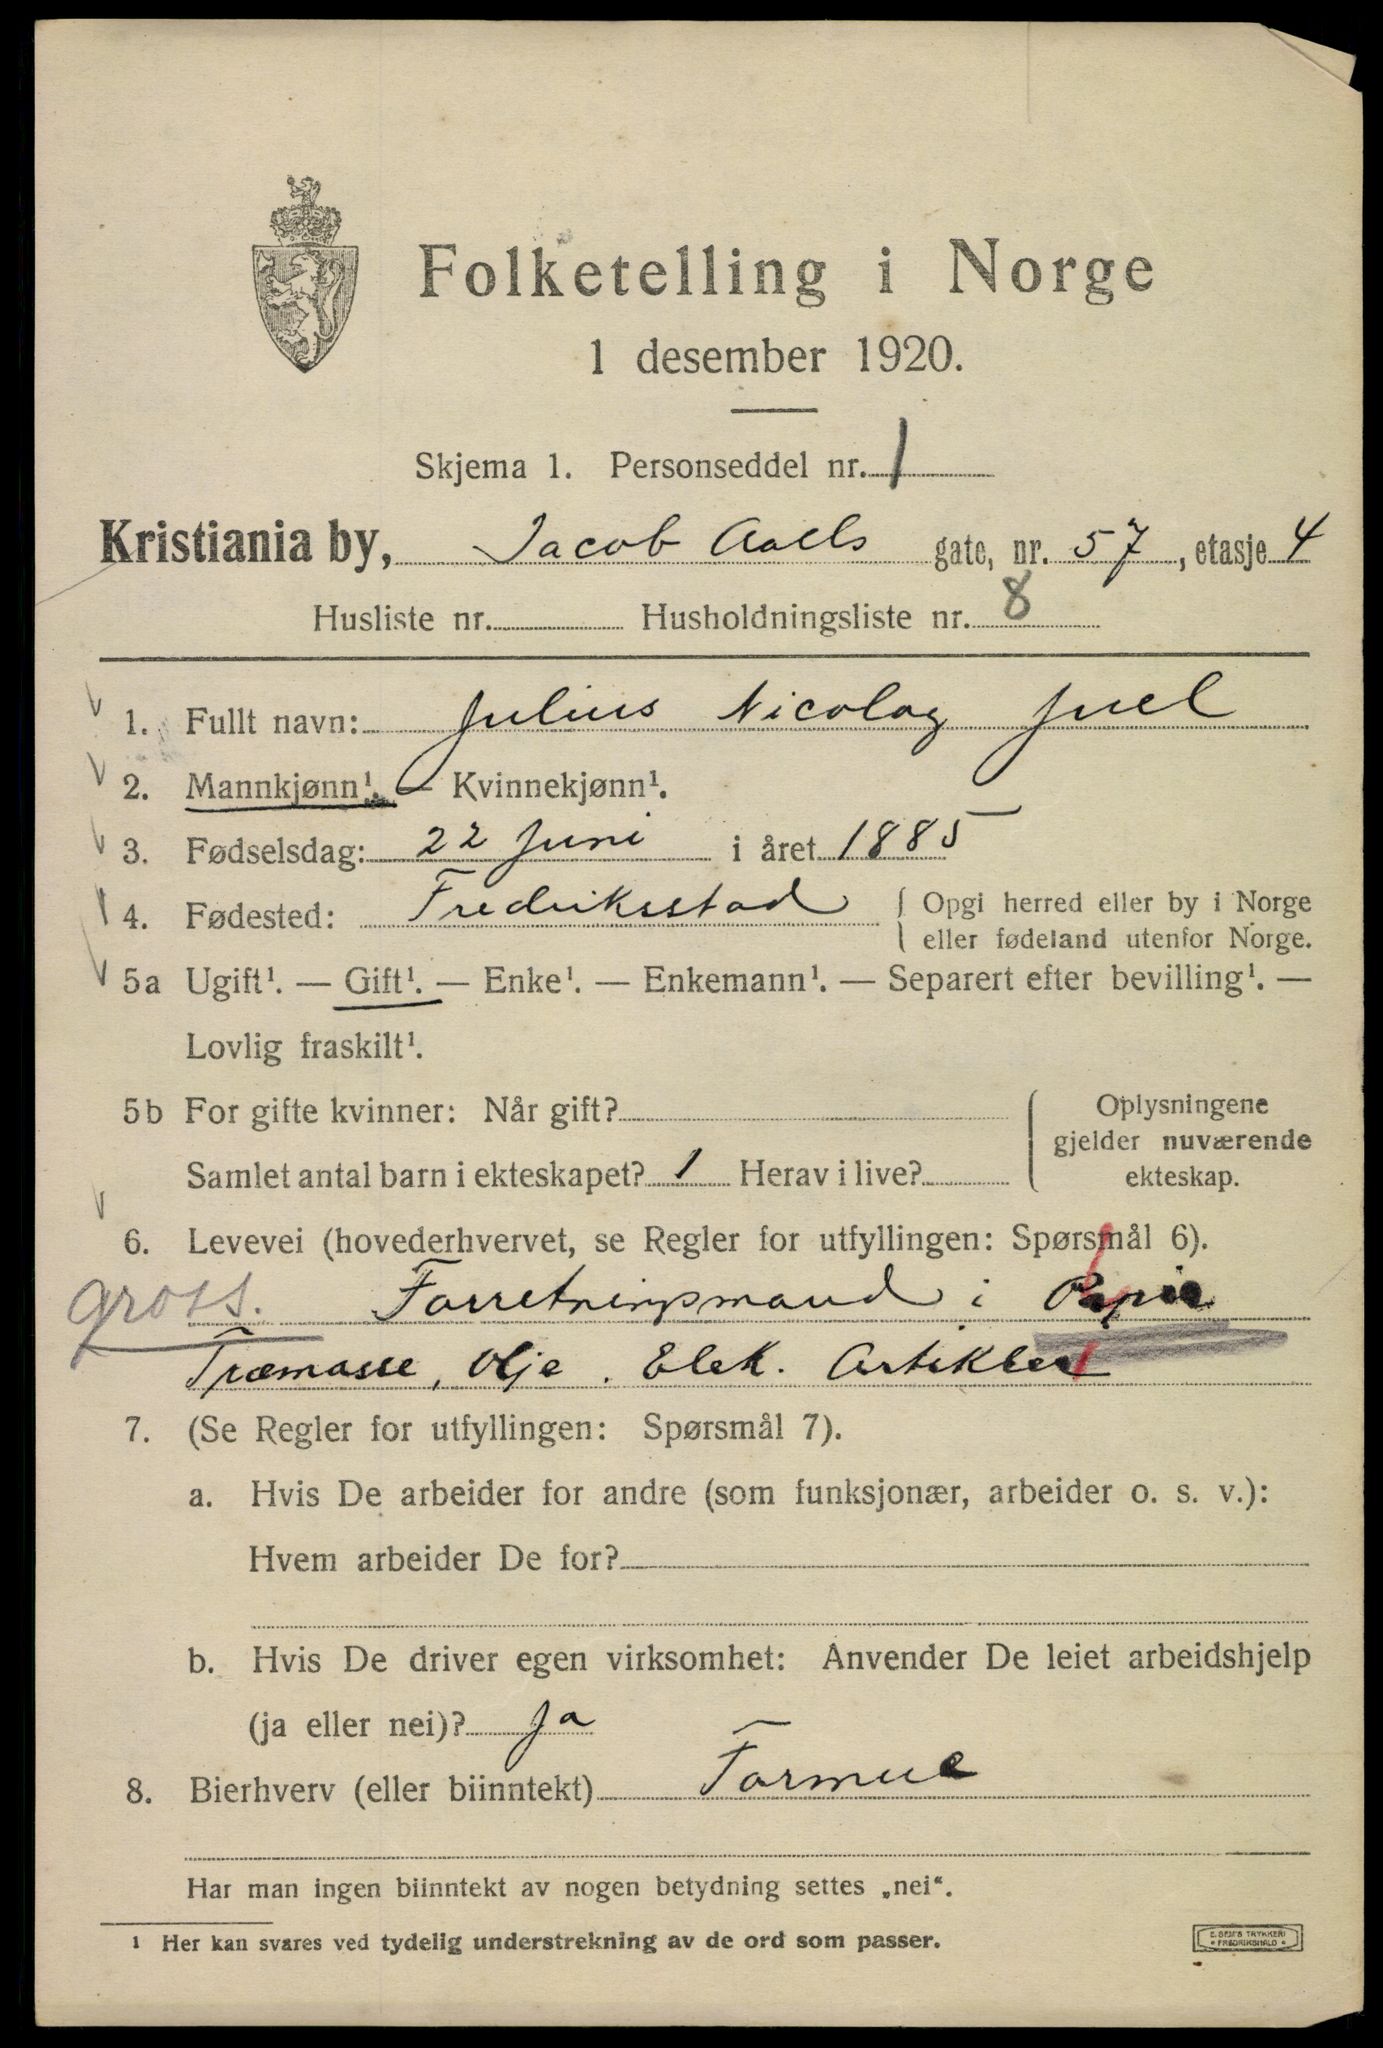 Folketelling i Norge
1 desember 1920.
Skjema 1. Personseddel nr. 1
Kristiania by, Jacob Aalls gate, nr. 57, etasje 4
Husliste nr. Husholdningsliste nr. 8
1. Fullt navn: Julius Nicolay Juel
2. Mannkjønn¹. — Kvinnekjønn¹.
3. Fødselsdag: 22 Juni i året 1885
4. Fødested: Fredriksstad { Opgi herred eller by i Norge
eller fødeland utenfor Norge.
5a Ugift¹. — Gift¹. — Enke¹. — Enkemann¹. — Separert efter bevilling¹. —
Lovlig fraskilt¹.
5b For gifte kvinner: Når gift? Oplysningene
gjelder nuværende
Samlet antal barn i ekteskapet? 1 Herav i live? ekteskap.
6. Levevei (hovederhvervet, se Regler for utfyllingen: Spørsmål 6).
gross. Forretningsmand i Papir
Træmasse, Olje. Elek. Artikler
7. (Se Regler for utfyllingen: Spørsmål 7).
a. Hvis De arbeider for andre (som funksjonær, arbeider o. s. v.):
Hvem arbeider De for?
b. Hvis De driver egen virksomhet: Anvender De leiet arbeidshjelp
(ja eller nei)? Ja
8. Bierhverv (eller biinntekt) Formue
Har man ingen biinntekt av nogen betydning settes „nei“.
¹ Her kan svares ved tydelig understrekning av de ord som passer.
E. SEM'S TRYKKERI
• FREDRIKSHALD •